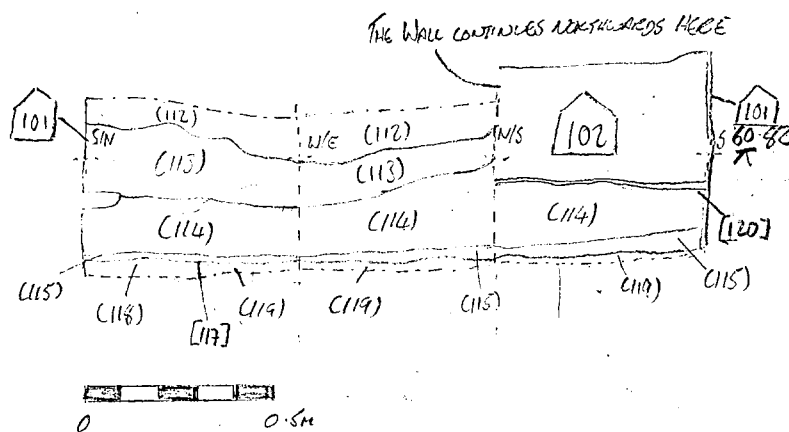 THE WALL CONTINUES NORTHWARDS HERE
101
(112)
S/N
W/E
(112)
N/S
102
101
S
60.82
(113)
(113)
(114)
(114)
(114)
[120]
(115)
(118)
[117]
(119)
(119)
(115)
(117)
(115)
0
0.5M